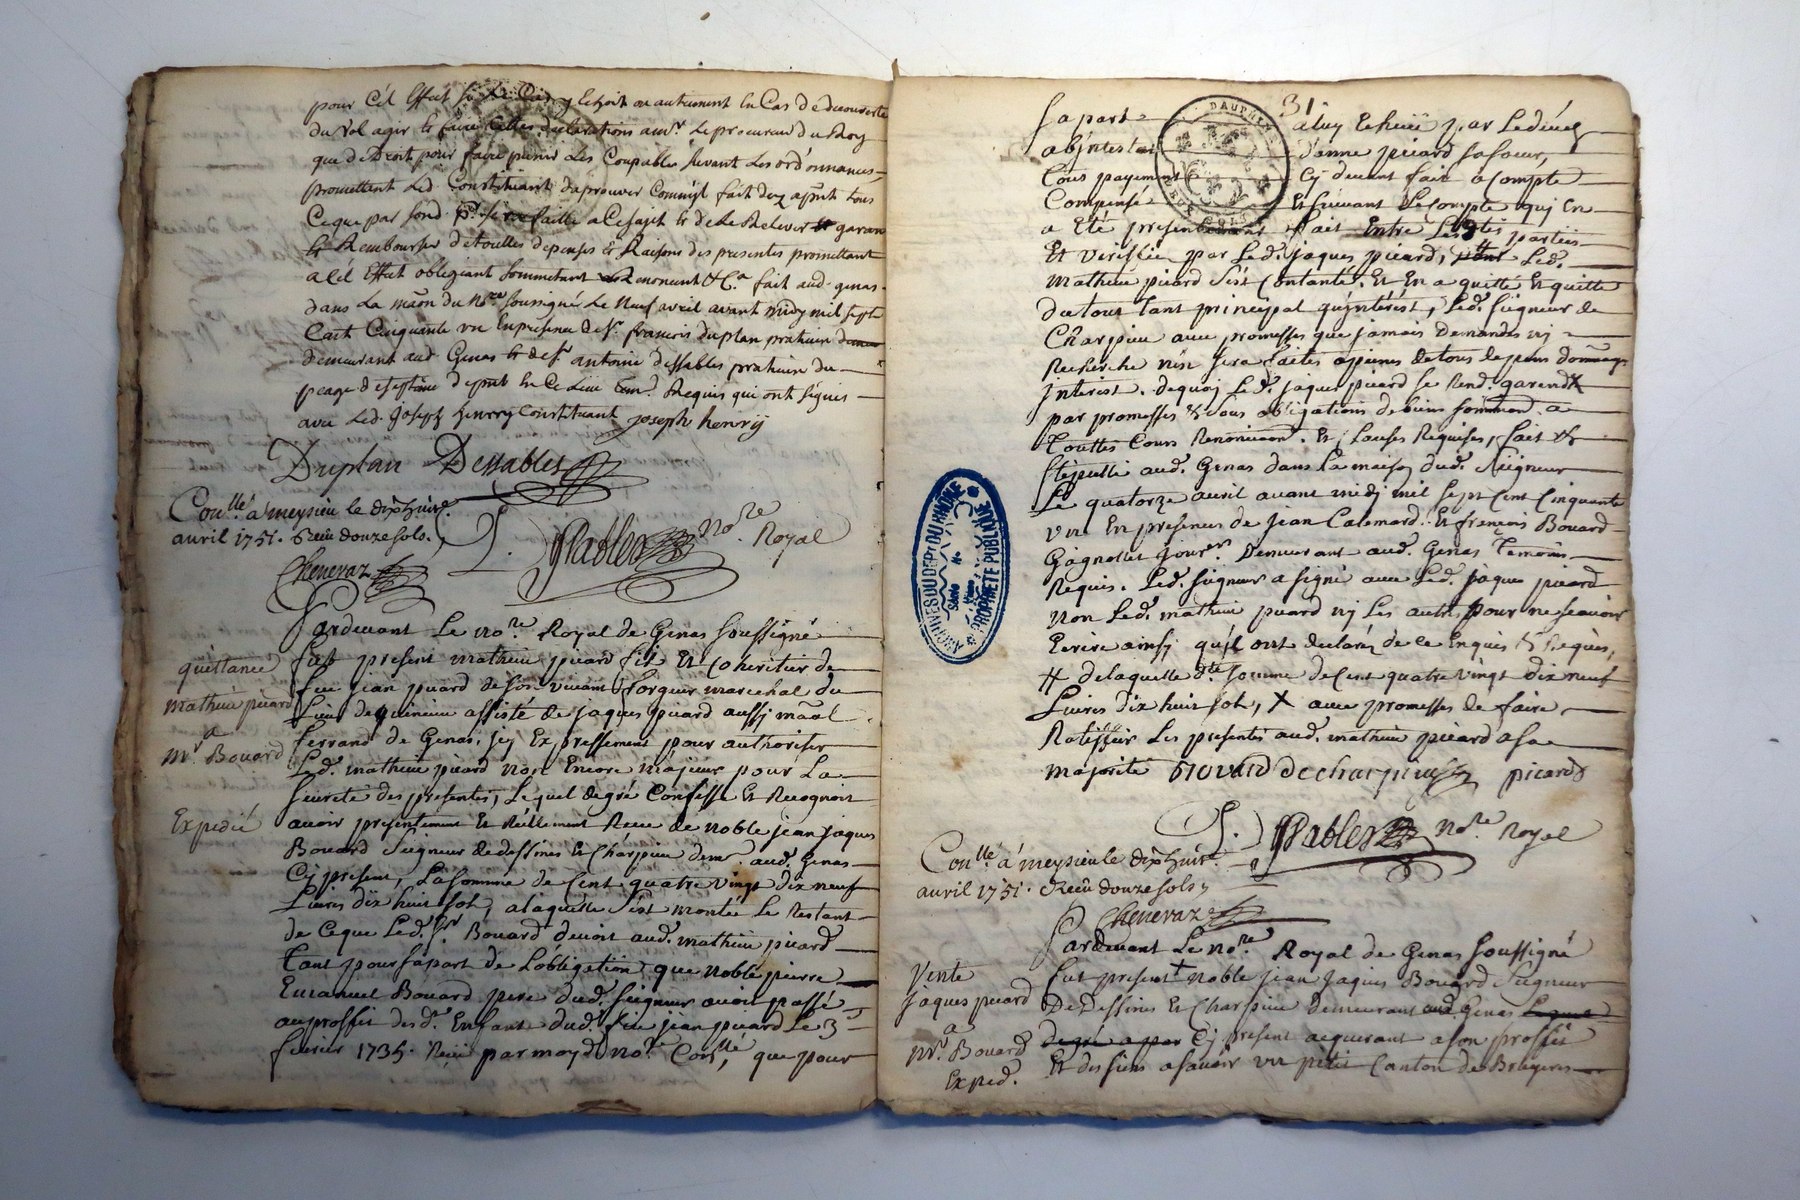 pour Cét Effet si Le Cas y Echoit ou autrement En Cas de decouverte
du vol agir Et faire telles declarations a Mr. Le procureur du Roy
que de Droit pour faire punir Les Coupables suivant Les ordonnances,
promettant Led. Constituant d'aprouver Comm'il fait dez aprésent tous
Ce que par sond. pr. sera faitte a Ce sujet Et de Le Relever Et garan
Et Rembourser de touttes depenses Et Raisons des presentes promettant
a Cét Effet obligeant soumettant Renonceant &Ca. fait aud. genas
dans La maison du Nore. soussigné Le Neuf avril avant midy mil sept
Cent Cinquante un En presence de Sr. francois duplan praticien
demeurant aud Genas Et de Sr. antoine dessables praticien du
peage de septême depuis En Ce Lieu Requis qui ont signés
avec Led. Joseph henrry Constituant Joseph henrÿ
Duplan Dessables
Conllé à meysieu le dixhuit
avril 1751. Receu douze sols.
Chenevaz
Dessables nore. Royal
Pardevant Le nore. Royal de Genas soussigné
quittance
fut present mathieu picard fils Et Coheritier de
feu jean picard de son vivant forgeur marechal du
Mathieu picard
Lieu de assisté de jaques picard aussy maal.
a
ferrand de Genas, jcy Expressement pour authoriser
Mr. Bouard
Led. mathieu picard non Encore majeur pour La
seureté des presentes, Lequel de gré Confesse Et Recognoit
Expedié
avoir presentement Et Réellement Receu de noble jean jaques
Bouard Seigneur de dessines Et Charpieu demt. aud. Genas
Cy present, La somme de Cent quatre vingt dix neuf
Livres dix huit sols, a laquelle s'est montée Le Restant
de Ce que Led. Sr. Bouard devoit aud. mathieu picard
tant pour sa part de L'obligation que noble pierre
Emanuel Bouard pere dud. seigneur avoit passé
au proffit desd. Enfants dud. feu jean picard Le 3e
fevrier 1735. Receu par moyd. nore. Conllé, que pour
31
DAUPHIN
sa part a luy Echeüe par Ledécez
abjntestat d'anne picard sa soeur,
tous payements Cy devant fait a Compte
Compensé Et suivant Le Compte qui En
a Eté presentement fait Entre Lesdtes parties
Et Verifiée par Led. jaques picard, Led.
Mathieu picard s'est Contanté. Et En a quitté Et quitte
du tout tant principal qu'jnterest, Led. seigneur de
Charpieu avec promesses que jamais demandes ny
Recherche n'en sera faites apeines de tous depens dommages
jnterest. de quoy Led. jaques picard se Rend. garend X
par promesses Et sous obligations de biens soumiss. a
touttes Cours Renonciaon. Et Clauses Requises, fait Et
stipullé aud. Genas dans La maison dud. Seigneur
Le quatorze avril avant midy mil sept Cent Cinquante
un En presence de jean Calemard Et francois Bouard
Gagnollet jourers. demeurant aud. Genas temoins
Requis. Led. seigneur a signé avec Led. jaques picard
non Led. mathieu picard ny Les autres pour ne scavoir
Ecrire ainsy qu'jl ont declaré de ce Enquis Et Requis,
# de laquelle dte somme de Cent quatre vingt dix neuf
Livres dix huit sols, X avec promesses de faire
Ratiffier Les presentes aud. mathieu picard a sa
majorité Bouard decharpieu picard
Dessables nore. Royal
Conllé à meysieu le dixhuit
avril 1751. Receu douze sols
Chenevaz
Pardevant Le nore. Royal de Genas soussigné
Vente
fut present noble jean jaques Bouard Seigneur
jaques picard
De Dessines Et Charpieu demeurant aud. Genas
a
Mr. Bouard
Cy present acquerant a son proffit
Exped.
Et des siens a scavoir un petit Canton de
ARCHIVES DU DEPT DU RHÔNE
PROPRIÉTÉ PUBLIQUE